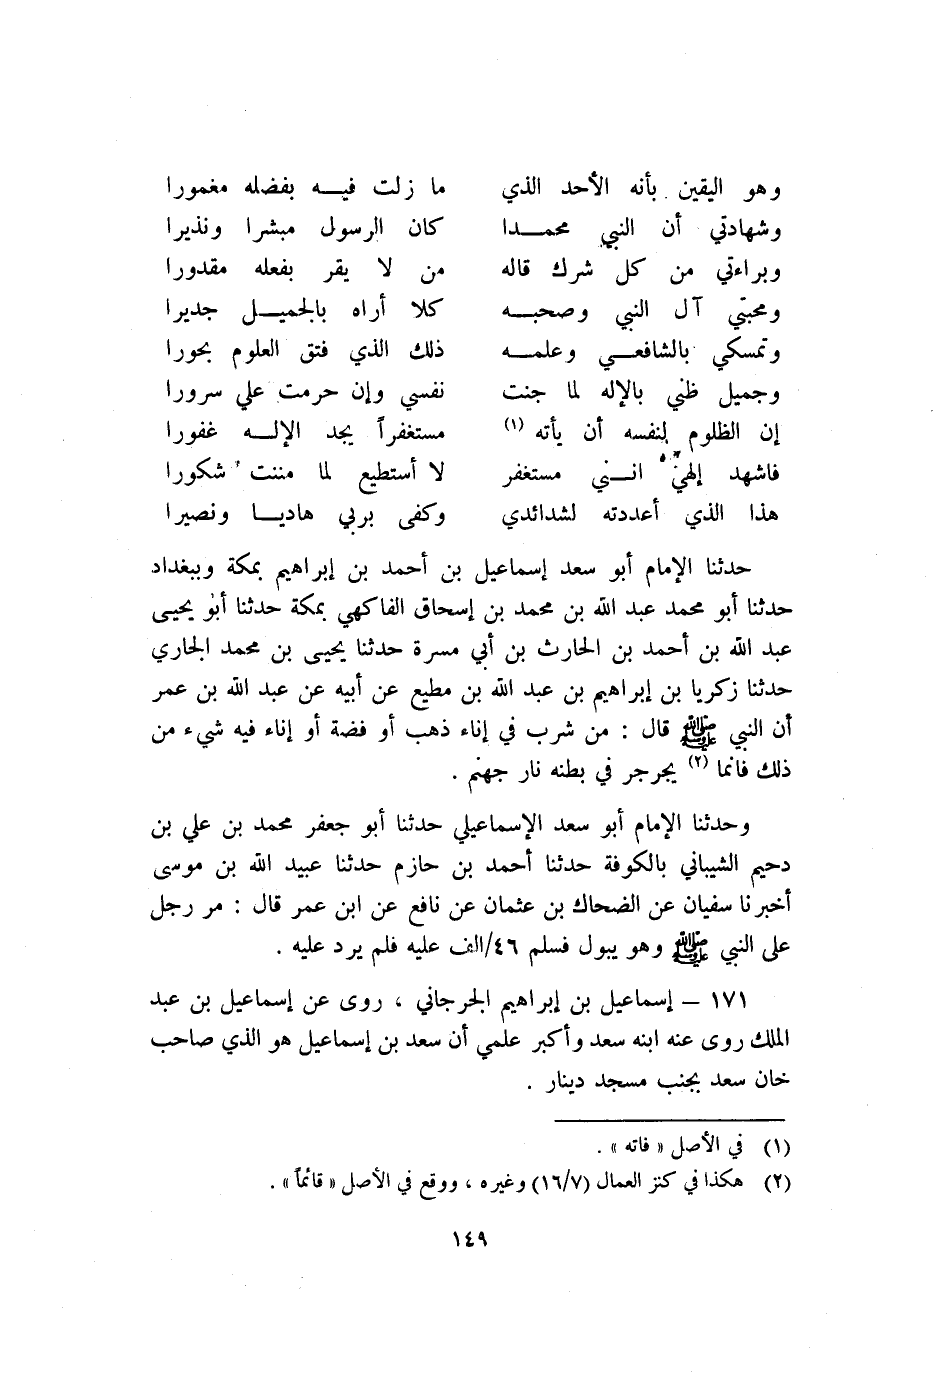 وهو اليقين بأنه الأحد الذي ما زلت فيه بفضله مغمورا
وشهادتي أن النبي محمدا كان الرسول مبشرا ونذيرا
وبراءتي من كل شرك قاله من لا يقر بفعله مقدورا
ومحبتي آل النبي وصحبه كلا أراه بالجميل جديرا
وتمسكي بالشافعي وعلمه ذلك الذي فتق العلوم بحورا
وجميل ظني بالإله لما جنت نفسي وإن حرمت علي سرورا
إن الظلوم لنفسه أن يأته (١) مستغفراً يجد الإله غفورا
فاشهد إلهي انني مستغفر لا أستطيع لما مننت شكورا
هذا الذي أعددته لشدائدي وكفى بربي هاديا ونصيرا
حدثنا الإمام أبو سعد إسماعيل بن أحمد بن إبراهيم بمكة وببغداد
حدثنا أبو محمد عبد الله بن محمد بن إسحاق الفاكهي بمكة حدثنا أبو يحيى
عبد الله بن أحمد بن الحارث بن أبي مسرة حدثنا يحيى بن محمد الجاري
حدثنا زكريا بن إبراهيم بن عبد الله بن مطيع عن أبيه عن عبد الله بن عمر
أن النبي ﷺ قال : من شرب في إناء ذهب أو فضة أو إناء فيه شيء من
ذلك فانما (٢) يجرجر في بطنه نار جهنم .
وحدثنا الإمام أبو سعد الإسماعيلي حدثنا أبو جعفر محمد بن علي بن
دحيم الشيباني بالكوفة حدثنا أحمد بن حازم حدثنا عبيد الله بن موسى
أخبرنا سفيان عن الضحاك بن عثمان عن نافع عن ابن عمر قال : مر رجل
على النبي ﷺ وهو يبول فسلم ٤٦/الف عليه فلم يرد عليه .
١٧١ – إسماعيل بن إبراهيم الجرجاني ، روى عن إسماعيل بن عبد
الملك روى عنه ابنه سعد وأكبر علمي أن سعد بن إسماعيل هو الذي صاحب
خان سعد بجنب مسجد دينار .
(١) في الأصل « فاته » .
(٢) هكذا في كنز العمال (١٦/٧) وغيره ، ووقع في الأصل « قائماً » .
١٤٩